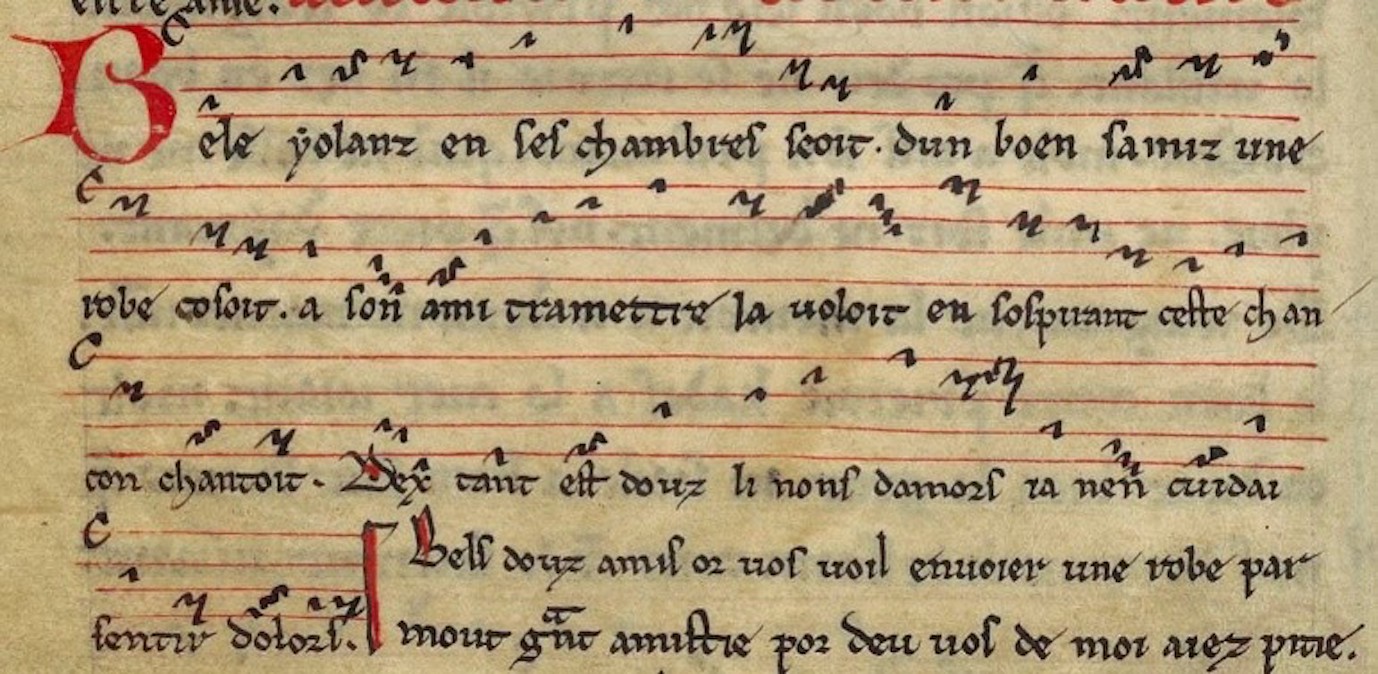 Bele yolanz en ses chambres seoit. dun boen samiz une
robe cosoit. a son ami tramettre la uoloit en sospirant ceste chan
con chantoit. Dex tant est douz li nons damors ia nen cuidai
sentir dolors.
Bels douz amis or uos uoil enuoier une robe par
mout gnt amistie por deu uos de moi aiez pitie.